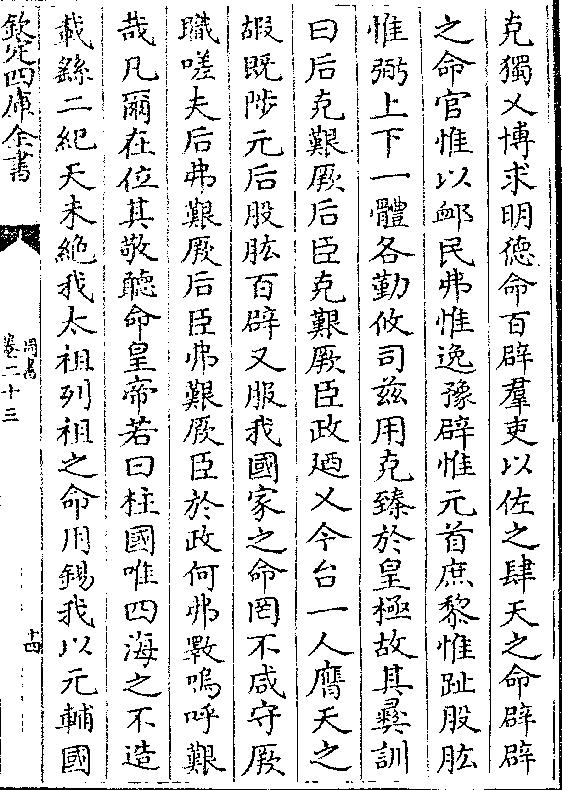 克獨乂博求明德命百辟羣吏以佐之肆天之命辟辟
之命官惟以䘏民弗惟逸豫辟惟元首庶黎惟趾股肱
惟弼上下一體各勤攸司兹用克臻於皇極故其彝訓
曰后克艱厥后臣克艱厥臣政廼乂今台一人膺天之
嘏既陟元后股肱百辟又服我國家之命罔不咸守厥
職嗟夫后弗艱厥后臣弗艱厥臣於政何弗斁嗚呼艱
哉凡爾在位其敬聽命皇帝若曰柱國唯四海之不造
載繇二紀天未絶我太祖列祖之命用錫我以元輔國
欽定四庫全書
周書
卷二十三
十四